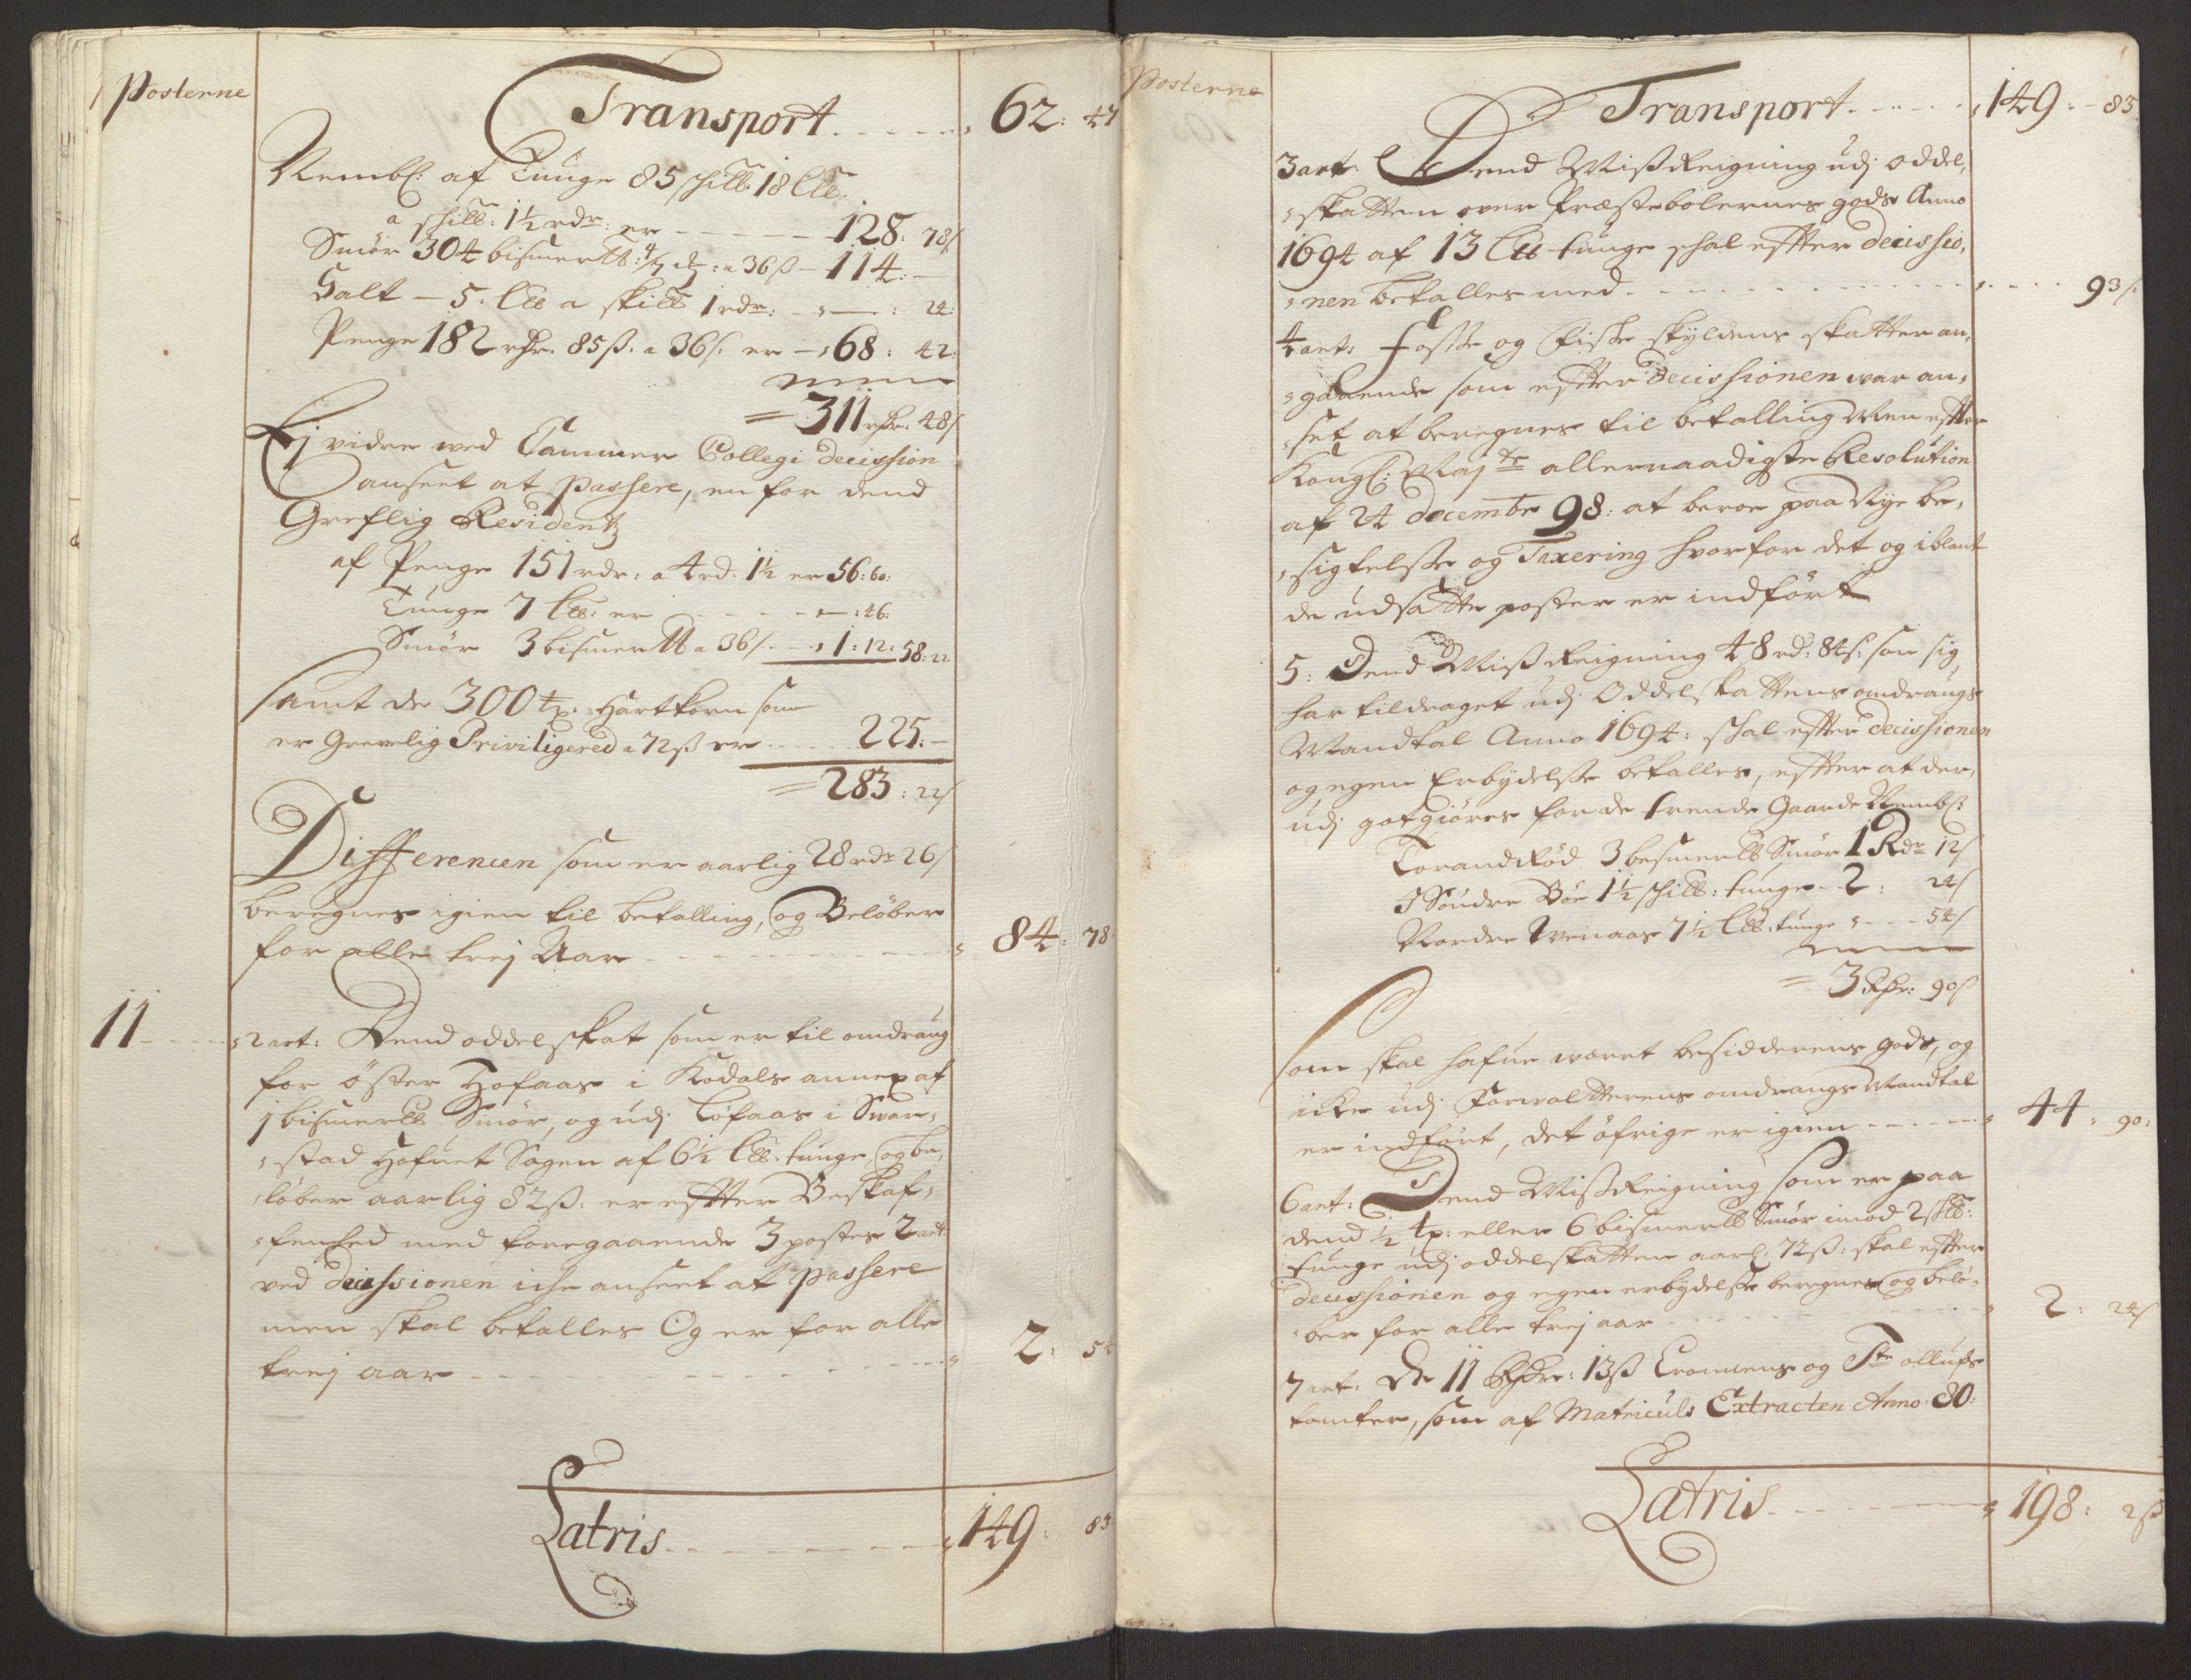 Posterne
Transport ..... 62: 47
Nembl: af Tunge 85 schillb. 18 Lb.
a schilb: 1½ rdr: er — 128: 78/
Smör 304 bismerlb: 4/7 dj: a 36 ß — 114: —
Salt — 5. Lb a skilb 1 rdr: — : 24:
Penge 182 rdr. 85 ß. a 36 /: er — 68: 42:
= 311 rdr: 48/
Ej vidre wed Cammer Collegi decission
anseet at passere, en for dend
Greflig Residentz
af Penge 151 rdr: a 4 rd. 1½ er 56: 60:
Tunge 7 Lb: er — : 46:
Smör 3 bismerlb a 36/. — 1: 12: 58: 22
samt de 300 tr. Hartkorn som
er Grevelig Priviligered a 72 ß er ..... 225: —
= 283: 22/
Differencen som er aarlig 28 rdr 26/
beregnes igien til betalling, og Belöber
for alle trej Aar — 84: 78
11 — 2 art: Dend oddelskat som er til omdraug
for öster Hofaas i Kodals annex af
1 bismerlb Smör, og udj Löfaas i Svar,
,stad Hofuet Sogen af 6½ Lb. tunge, og be,
,löber aarlig 82 ß: er effter Beskaf,
,fenhed med foregaaende 3 postes 2 art:
ved decissionen iche anseet at passere
men skal betalles Og er for alle
trej aar — 2: 54
Latris — 149: 83
Posterne
Transport ..... 149: — 83
3 art: Dend Misz Reigning udj oddel,
,skatten over Præstebolernes gods Anno
1694 af 13 Lb tunge schal effter decissio,
,nen betalles med — 93/:
4 art: Fosse og Fiske skyldens skatter an,
,gaaende som effter decissionen war an,
,set at beregnes til betalling Men effter
Kongl: Maj:ts allernaadigste Resolution
af 24 decembr 98: at beroe paa Nye be,
,sigtelsse og Taxering hvorfor det og iblant
de udsatte poster er indfört
5: Dend Misz Reigning 48 rd: 84 s: som sig
har tildraget udj Oddelskattens omdraugs
Mandtal Anno 1694: schal effter decissionen
og egen Erbydelsse betalles, effter at der,
udj gotgiöres for de trende Gaarde Nembl:
Torandröd 3 besmerlb Smör 1 Rdr 12/
Söndre Böe 1½ schilb: tunge — 2: 24/
Nordre Wenaas 7½ Lb. tunge — 54/
= 3 Rdr: 90/
som skal hafue wæret besidderens gods, og
icke udj Forwalterens omdraugs Mandtal
er indfört, det öfrige er igien — 44: 90:
6 art: Dend Misz Reigning som er paa
dend ½ tr: eller 6 bismerlb Smör imod 2 sklb:
tunge udj oddelskatten aarl: 72 ß: skal effter
decissionen og egen erbydelsse beregnes og belö,
,ber for alle trej aar — 2: 24/
7 art: De 11 Rdr: 13 ß og Ste ollufs
tomter, som af Matriculs Extracten Anno: 80:
Latris — 198: 2 ß